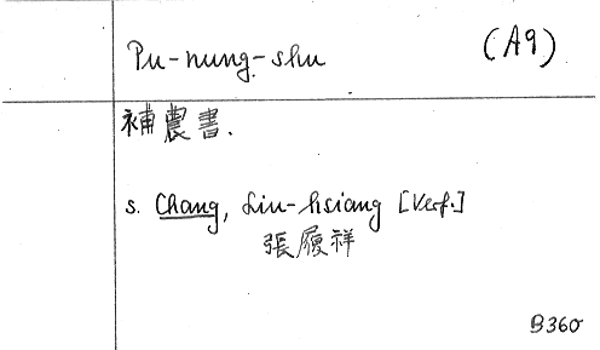 Pu-nung-shu
(A9)
補農書.
s. Chang, Liu-hsiang [Verf.]
張履祥
B360